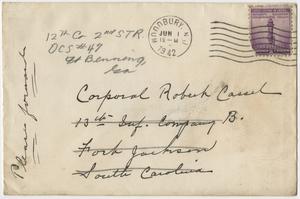 12th Co 2nd STR
OCS #49
Ft Benning,
Ga
WOODBURY, N.J.
JUN 1
12 - M
1942
Please forward
Corporal Robert Cassel
13th Inf. Company B.
Fort Jackson
South Carolina